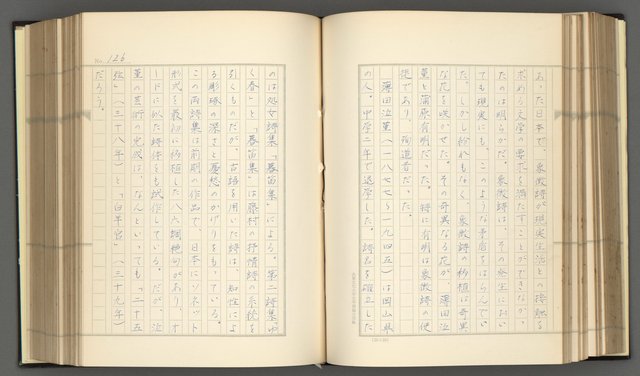 あった日本で、象徴詩が現実生活との接触を
求める文学の要求を満たすことができなかっ
たのは明らかだ。象徴詩は、その発生におい
ても現実にも、このような矛盾をはらんでい
た。しかし紛れもなく、象徴詩の移植は奇異
な花を咲かせた。その奇異なる花が、薄田泣
菫と蒲原有明だった。特に有明は象徴詩の使
徒であり、殉道者だった。
薄田泣菫（一八七七～一九四五）は岡山県
の人。中学二年で退学した。詩名を確立した
No. 126
のは処女詩集「暮笛集」による。第二詩集「ゆ
く春」と「暮笛集」は藤村の抒情詩の系統を
引くものだが、古語を用いた詩は、知性によ
る彫琢の深さと憂愁のかげりをもっている。
この両詩集は前期の作品で、日本にソネット
形式を最初に移植した八六調絶句があり、オ
ードに似た詩体をも試作している。だが、泣
菫の芸術の完成は、なんといっても「二十五
絃」（三十八年）と「白羊宮」（三十九年）
だろう。